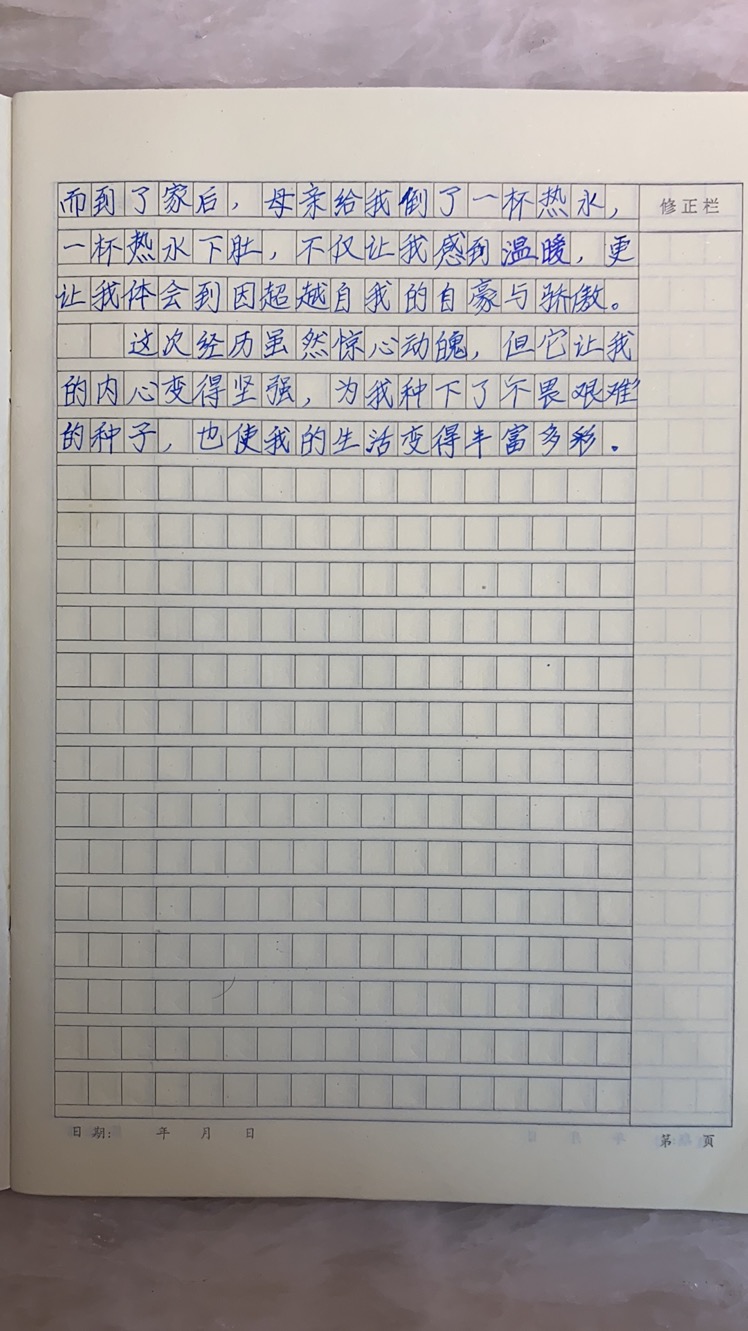 而到了家后，母亲给我倒了一杯热水，
修正栏
一杯热水下肚，不仅让我感到温暖，更
让我体会到因超越自我的自豪与骄傲。
这次经历虽然惊心动魄，但它让我
的内心变得坚强，为我种下了不畏艰难
的种子，也使我的生活变得丰富多彩．
日期： 年 月 日
第 页